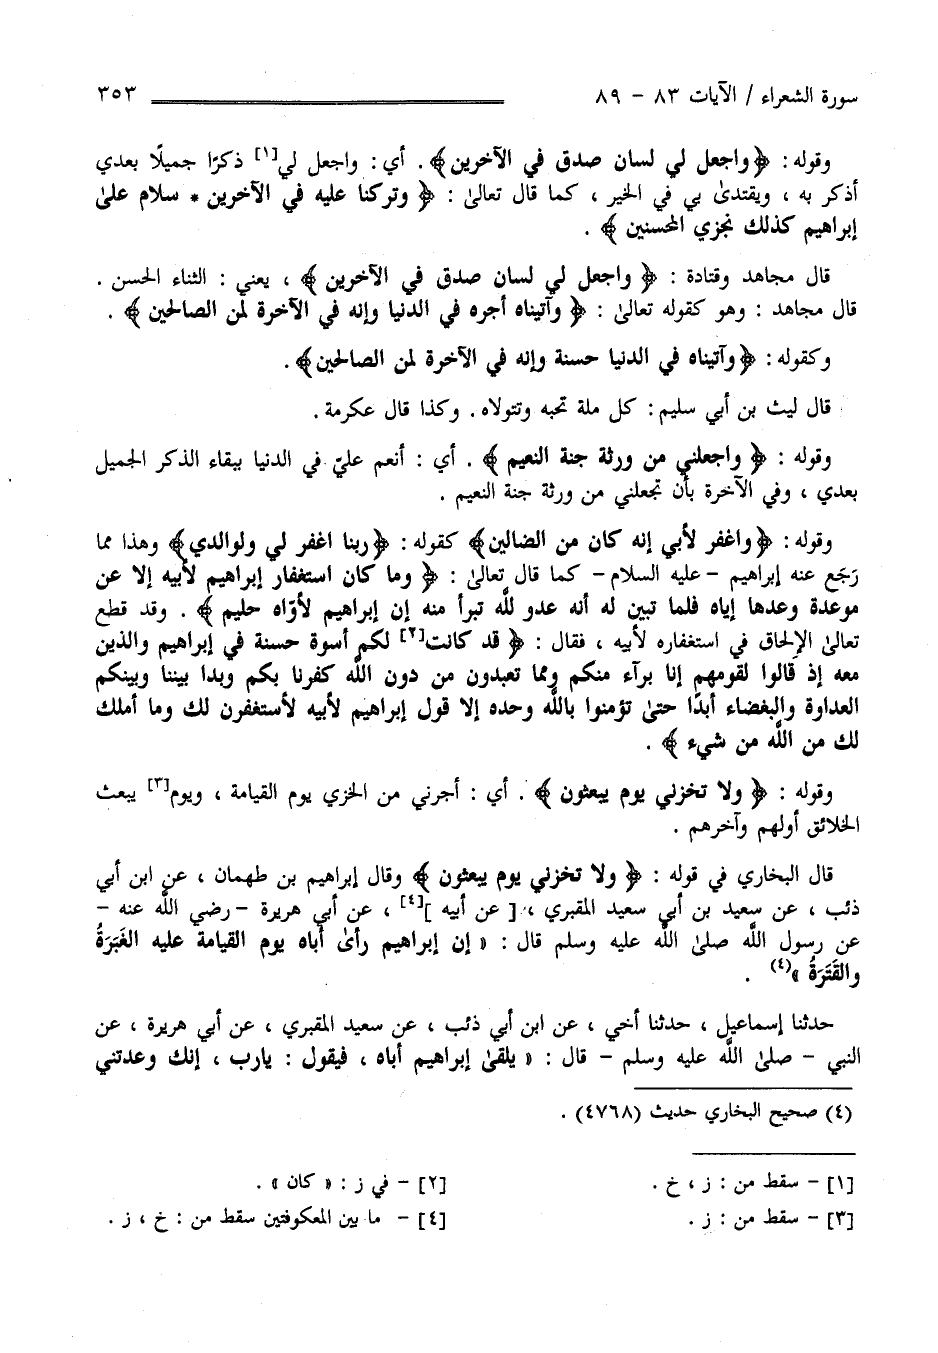 سورة الشعراء / الآيات ٨٣ - ٨٩ ٣٥٣
وقوله : ﴿ واجعل لي لسان صدق في الآخرين ﴾ . أي : واجعل لي[١] ذكرًا جميلًا بعدي
أذكر به ، ويقتدىٰ بي في الخير ، كما قال تعالىٰ : ﴿ وتركنا عليه في الآخرين * سلام علىٰ
إبراهيم كذلك نجزي المحسنين ﴾ .
قال مجاهد وقتادة : ﴿ واجعل لي لسان صدق في الآخرين ﴾ ، يعني : الثناء الحسن .
قال مجاهد : وهو كقوله تعالىٰ : ﴿ وآتيناه أجره في الدنيا وإنه في الآخرة لمن الصالحين ﴾ .
وكقوله : ﴿ وآتيناه في الدنيا حسنة وإنه في الآخرة لمن الصالحين ﴾ .
قال ليث بن أبي سليم : كل ملة تحبه وتتولاه . وكذا قال عكرمة .
وقوله : ﴿ واجعلني من ورثة جنة النعيم ﴾ . أي : أنعم عليّ في الدنيا ببقاء الذكر الجميل
بعدي ، وفي الآخرة بأن تجعلني من ورثة جنة النعيم .
وقوله : ﴿ واغفر لأبي إنه كان من الضالين ﴾ كقوله : ﴿ ربنا اغفر لي ولوالدي ﴾ وهذا مما
رَجَع عنه إبراهيم - عليه السلام - كما قال تعالىٰ : ﴿ وما كان استغفار إبراهيم لأبيه إلا عن
موعدة وعدها إياه فلما تبين له أنه عدو للَّه تبرأ منه إن إبراهيم لأوّاه حليم ﴾ . وقد قطع
تعالىٰ الإلحاق في استغفاره لأبيه ، فقال : ﴿ قد كانت[٢] لكم أسوة حسنة في إبراهيم والذين
معه إذ قالوا لقومهم إنا برآء منكم ومما تعبدون من دون اللَّه كفرنا بكم وبدا بيننا وبينكم
العداوة والبغضاء أبدًا حتىٰ تؤمنوا باللَّه وحده إلا قول إبراهيم لأبيه لأستغفرن لك وما أملك
لك من اللَّه من شيء ﴾ .
وقوله : ﴿ ولا تخزني يوم يبعثون ﴾ . أي : أجرني من الخزي يوم القيامة ، ويوم[٣] يبعث
الخلائق أولهم وآخرهم .
قال البخاري في قوله : ﴿ ولا تخزني يوم يبعثون ﴾ وقال إبراهيم بن طهمان ، عن ابن أبي
ذئب ، عن سعيد بن أبي سعيد المقبري ، [ عن أبيه ][٤] ، عن أبي هريرة - رضي اللَّه عنه -
عن رسول اللَّه صلىٰ اللَّه عليه وسلم قال : « إن إبراهيم رأىٰ أباه يوم القيامة عليه الغَبَرَةُ
والقَتَرَةُ »(٤) .
حدثنا إسماعيل ، حدثنا أخي ، عن ابن أبي ذئب ، عن سعيد المقبري ، عن أبي هريرة ، عن
النبي - صلىٰ اللَّه عليه وسلم - قال : « يلقىٰ إبراهيم أباه ، فيقول : يارب ، إنك وعدتني
(٤) صحيح البخاري حديث (٤٧٦٨) .
[١] - سقط من : ز ، خ . [٢] - في ز : « كان » .
[٣] - سقط من : ز . [٤] - ما بين المعكوفتين سقط من : خ ، ز .